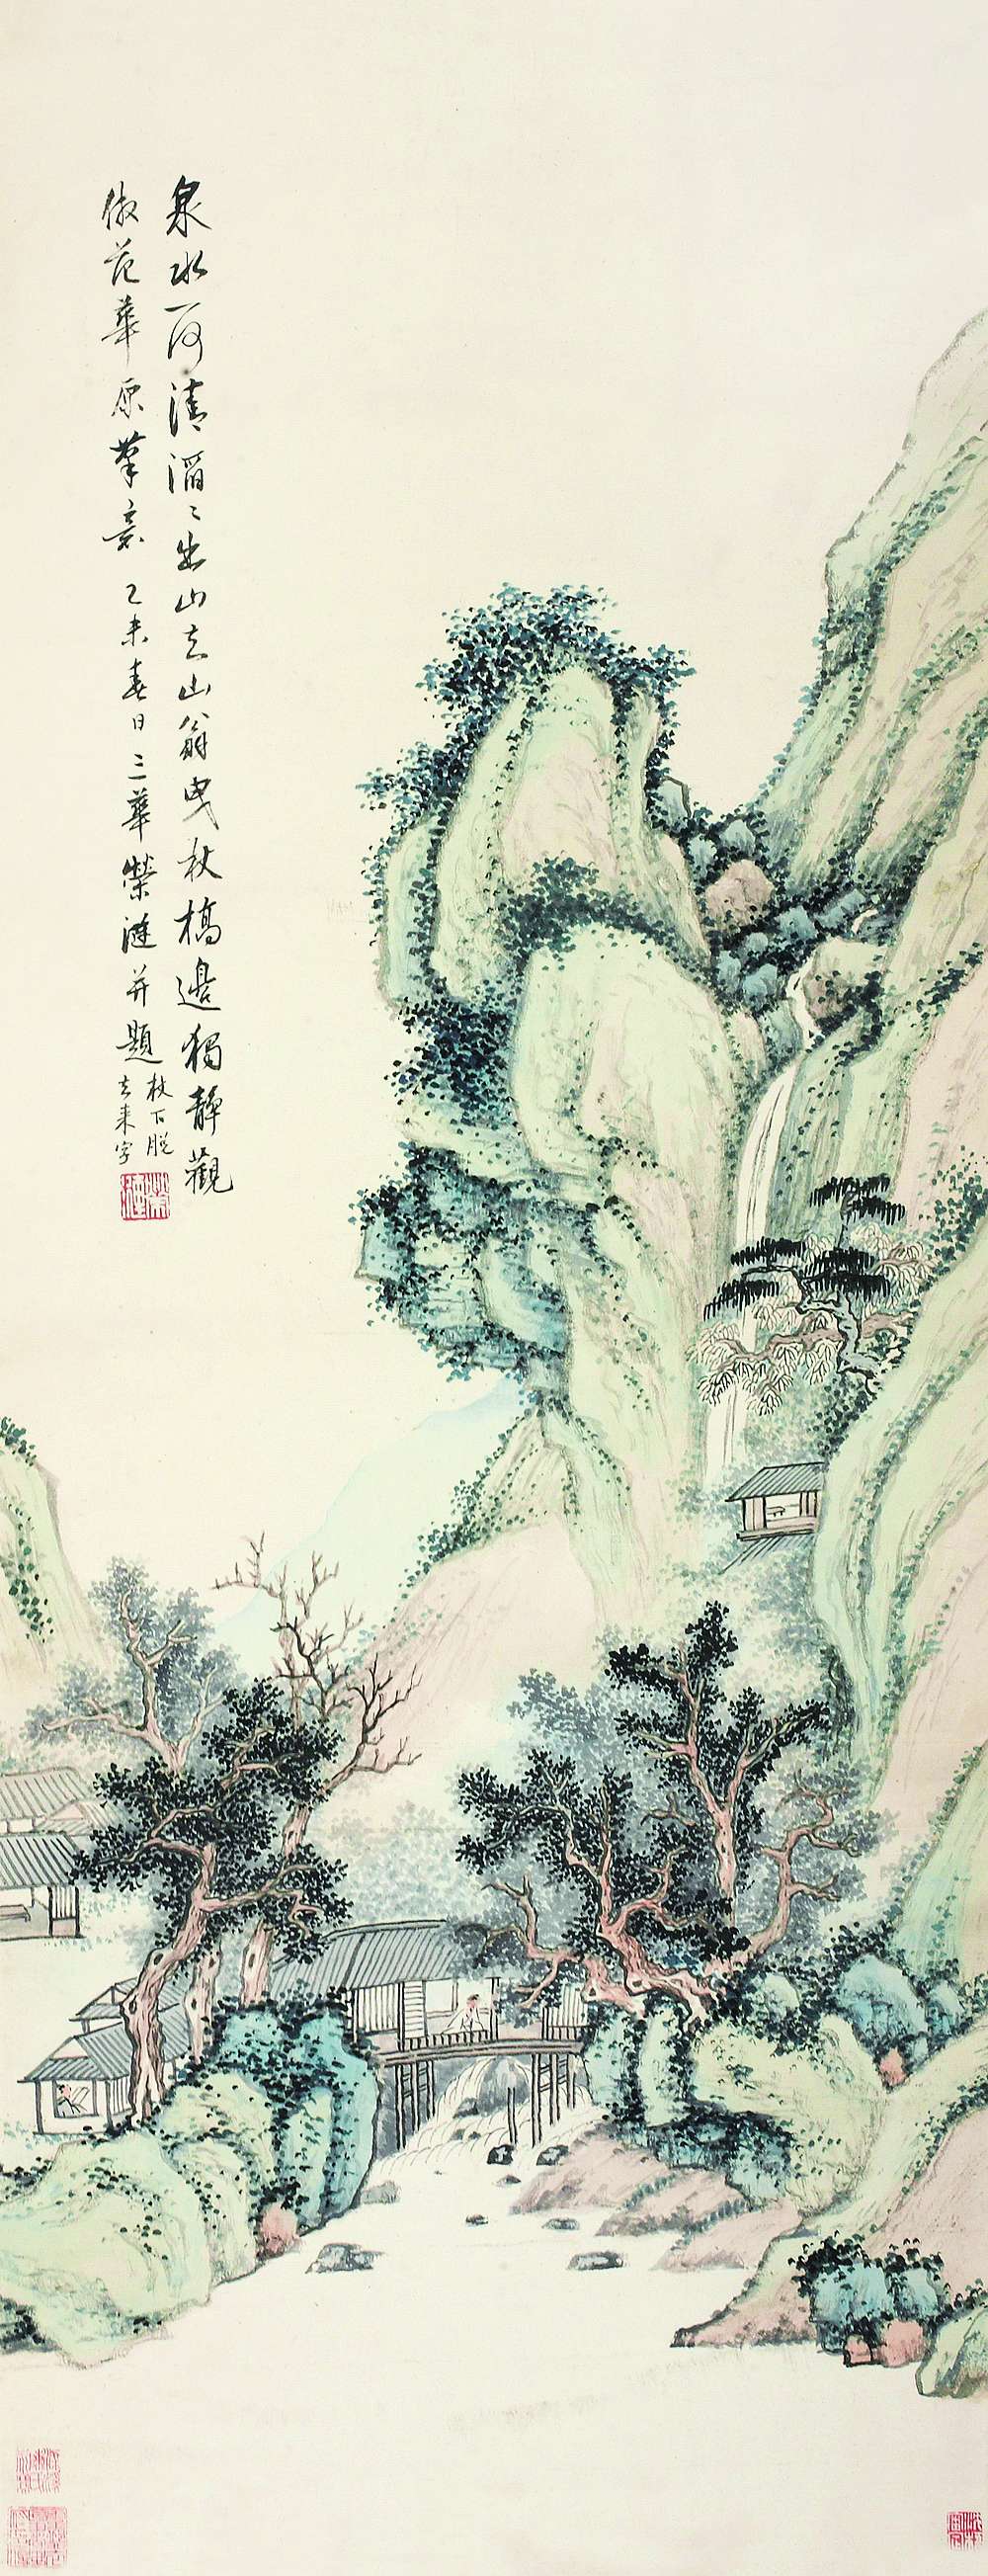 泉水一何清滔〻出山去山翁曳杖橋邊獨靜觀
倣范華原筆意 乙未春日三華榮漣并題
杖下脫
去來字
榮漣